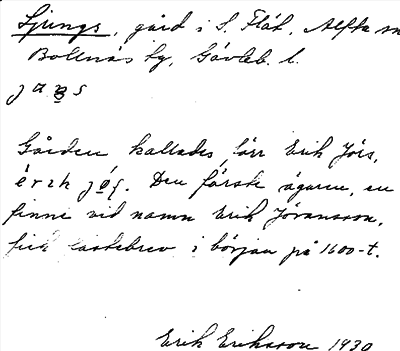 Ljungs, gård i S. Flät, Alfta sn
Bollnäs kg, Gävleb. l.
Gården kallades förr Erik Jörs,
Den förste ägaren, en
finne vid namn Erik Jöransson,
fick fastebrev i början på 1600-t.
Erik Eriksson 1930